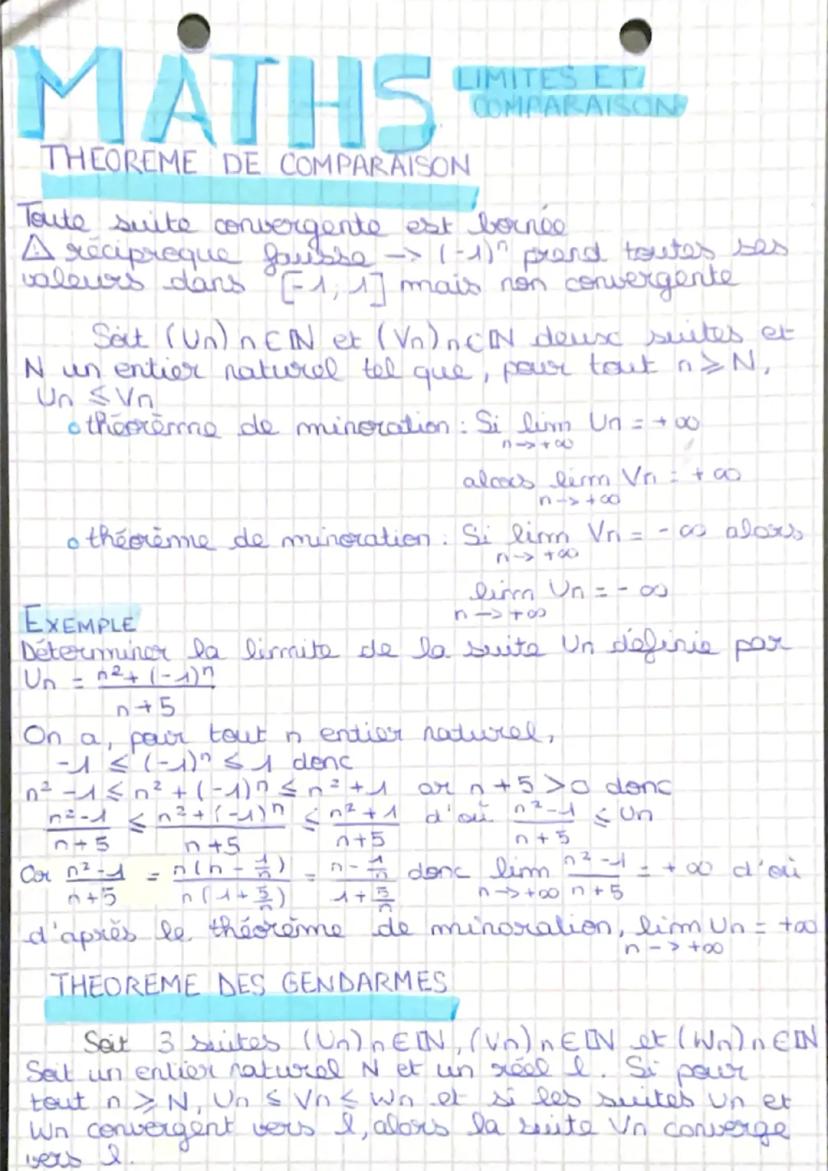 MATHS
LIMITES ET
COMPARAISON
THEOREME DE COMPARAISON
Toute suite convergente est bornée
⚠ réciproque fausse -> (-1)ⁿ prend toutes ses
valeurs dans [-1; 1] mais non convergente
Soit (Un) n∈ℕ et (Vn) n∈ℕ deux suites et
N un entier naturel tel que, pour tout n ⩾ N,
Un ⩽ Vn
o théorème de minoration : Si lim Un = +∞
n->+∞
alors lim Vn = +∞
n->+∞
o théorème de minoration : Si lim Vn = -∞ alors
n->+∞
lim Un = -∞
n->+∞
EXEMPLE
Déterminer la limite de la suite Un définie par
Un = n²+(-1)ⁿ
n+5
On a, pour tout n entier naturel,
-1 ⩽ (-1)ⁿ ⩽ 1 donc
n²-1 ⩽ n²+(-1)ⁿ ⩽ n²+1 or n+5>0 donc
n²-1 ⩽ n²+(-1)ⁿ ⩽ n²+1 d'où n²-1 ⩽ Un
n+5 n+5 n+5 n+5
Or n²-1 = n(n-1/n) = n-1/n donc lim n²-1 = +∞ d'où
n+5 n(1+5/n) 1+5/n n->+∞ n+5
d'après le théorème de minoration, lim Un = +∞
n->+∞
THEOREME DES GENDARMES
Soit 3 suites (Un) n∈ℕ, (Vn) n∈ℕ et (Wn) n∈ℕ
Soit un entier naturel N et un réel l. Si pour
tout n ⩾ N, Un ⩽ Vn ⩽ Wn et si les suites Un et
Wn convergent vers l, alors la suite Vn converge
vers l.